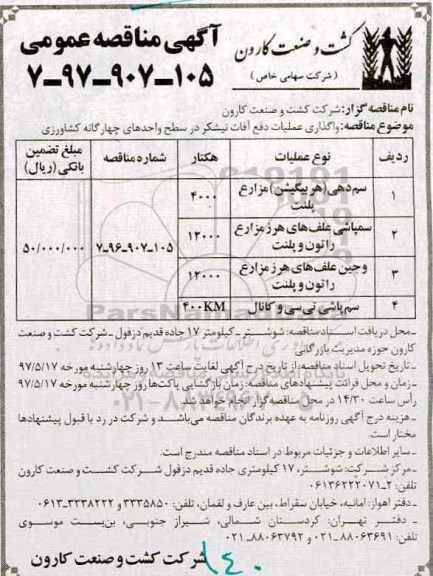 آگهی مناقصه عمومی
۷-۹۷-۹۰۷-۱۰۵
کشت و صنعت کارون
( شرکت سهامی خاص )
نام مناقصه گزار: شرکت کشت و صنعت کارون
موضوع مناقصه: واگذاری عملیات دفع آفات نیشکر در سطح واحدهای چهارگانه کشاورزی
ردیف نوع عملیات هکتار شماره مناقصه مبلغ تضمین بانکی (ریال)
۱ سم‌دهی (هربیگیشن) مزارع پلنت ۴۰۰۰
۲ سمپاشی علف‌های هرز مزارع راتون و پلنت ۱۲۰۰۰ ۷-۹۶-۹۰۷-۱۰۵ ۵۰/۰۰۰/۰۰۰
۳ وجین علف‌های هرز مزارع راتون و پلنت ۱۲۰۰۰
۴ سم‌پاشی تی‌سی و کانال ۴۰۰KM
ـ محل دریافت اسناد مناقصه: شوشتر ـ کیلومتر ۱۷ جاده قدیم دزفول ـ شرکت کشت و صنعت
کارون حوزه مدیریت بازرگانی
ـ تاریخ تحویل اسناد مناقصه: از تاریخ درج آگهی لغایت ساعت ۱۳ روز چهارشنبه مورخه ۹۷/۵/۱۷
ـ زمان و محل قرائت پیشنهادهای مناقصه: زمان بازگشایی پاکت‌ها روز چهارشنبه مورخه ۹۷/۵/۱۷
رأس ساعت ۱۴/۳۰ در محل مناقصه‌گزار انجام خواهد شد.
ـ هزینه درج آگهی روزنامه به عهده برندگان مناقصه می‌باشد و شرکت در رد یا قبول پیشنهادها
مختار است.
ـ سایر اطلاعات و جزئیات مربوط در اسناد مناقصه مندرج است.
ـ مرکز شرکت: شوشتر، ۱۷ کیلومتری جاده قدیم دزفول شرکت کشت و صنعت کارون
تلفن: ۲-۰۶۱۳۶۲۲۲۰۷۱
ـ دفتر اهواز: امانیه، خیابان سقراط، بین عارف و لقمان، تلفن: ۳۳۳۵۸۵۰ و ۳۳۳۸۲۲۲-۰۶۱۳
ـ دفتر تهران: کردستان شمالی، شیراز جنوبی، بن‌بست موسوی
تلفن: ۸۸۰۶۳۶۹۱-۰۲۱ و ۸۸۰۶۳۷۹۲-۰۲۱
شرکت کشت و صنعت کارون
۱۴۰